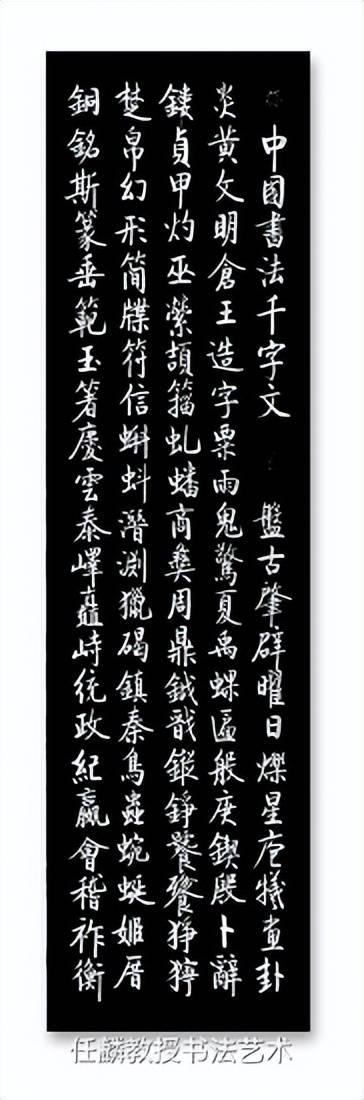 中國書法千字文 盤古肇辟曜日爍星庖犧畫卦
炎黃文明倉王造字粟雨鬼驚夏禹螺匾般庚鍥殷卜辭
鏤貞甲灼巫縈頡籀虬蟠商彝周鼎鉞鏦錚饕餮猙獰
楚帛幻形簡牒符信蝌蚪潛淵獵碣鎮秦鳥蟲蜿蜒姬厝
銅銘斯篆垂範玉箸慶雲泰嶧矗峙統政紀贏會稽祚衡
任麟教授书法艺术